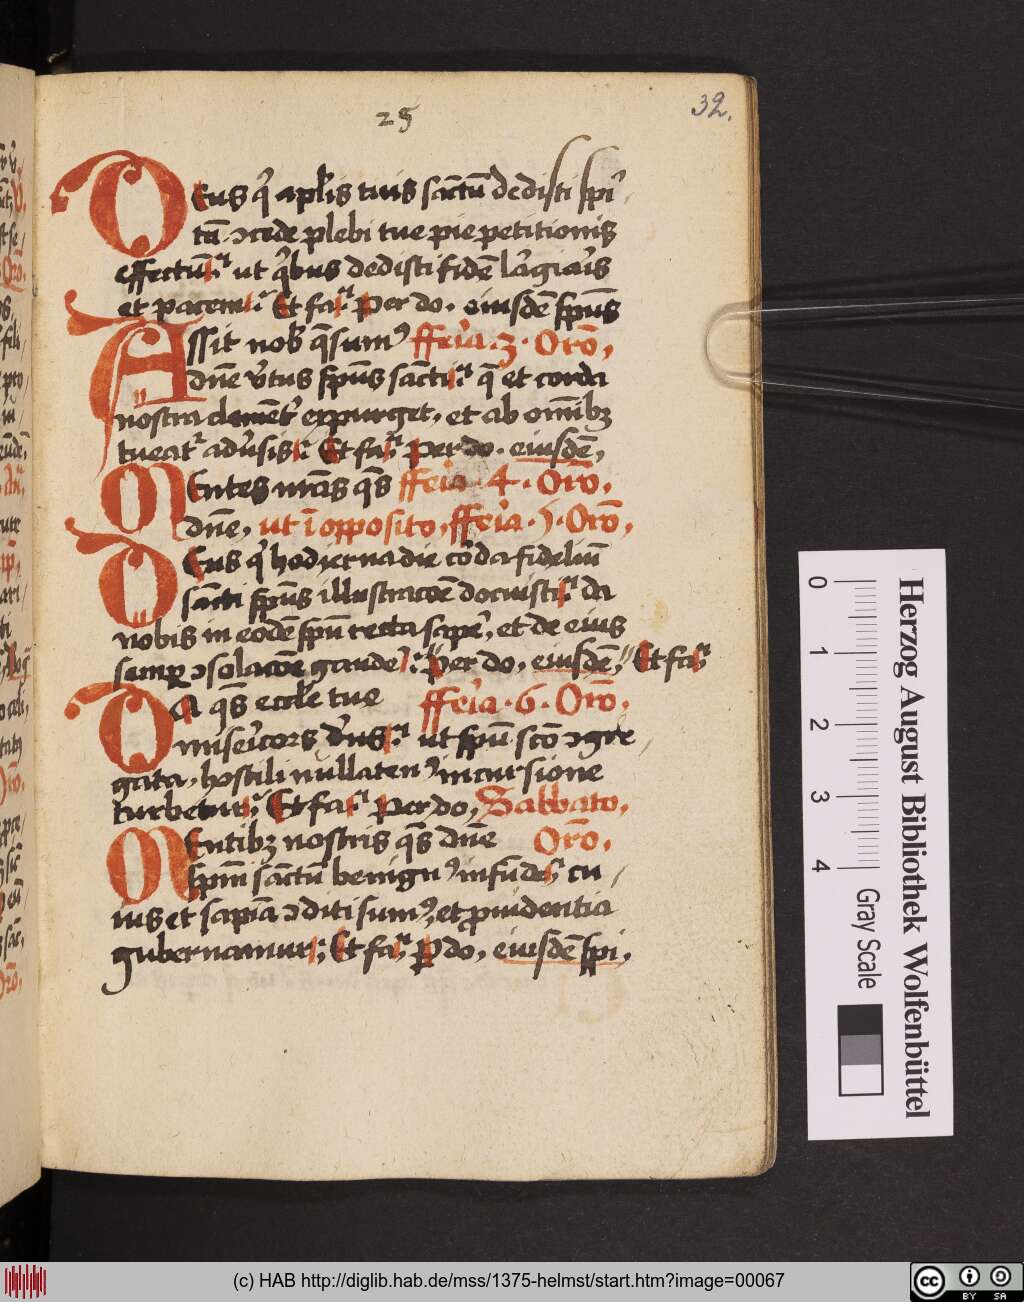 25
32.
Deus qͥ aplis tuis sanctū dedisti spi
tū ꝯcede plebi tue pie petitionis
effectū ut qͥbus dedisti fidē largiaris
et pacem Et fa Per do. eiusdē spūs
Assit nob qs̄umꝰ fferia 3. Orō.
dn̄e virtus spūs sancti q̄ et corda
nostra clement expurget, et ab omībꝫ
tueat adūsis: Et fa Per do. eiusdē,
Mentes nrās qs̄ fferia 4. Orō.
dn̄e, ut ī opposito, fferia 5. Orō.
Deus qͥ hodierna die corda fideliū
sancti spūs illustracōe docuisti da
nobis in eodē spū recta sapē, et de eius
semꝑ ꝯsolacōe gaude: Per do, eiusdē, Et fa
Da qs̄ eccl̄e tue fferia 6. Orō.
misericors dn̄s ut spū scō ꝯgre
gata, hostili nullatenꝰ incursione
turbetur Et fa Per do, Sabbato,
Mentibꝫ nostris qs̄ dn̄e Orō.
spm̄ sanctū benignꝰ infude cu
ius et sapīa ꝯditi sumꝰ, et ꝓuidentia
gubernamur; Et fa ꝑ do, eiusdē spi,
Herzog August Bibliothek Wolfenbüttel
0 1 2 3 4
Gray Scale
(c) HAB http://diglib.hab.de/mss/1375-helmst/start.htm?image=00067
cc BY SA